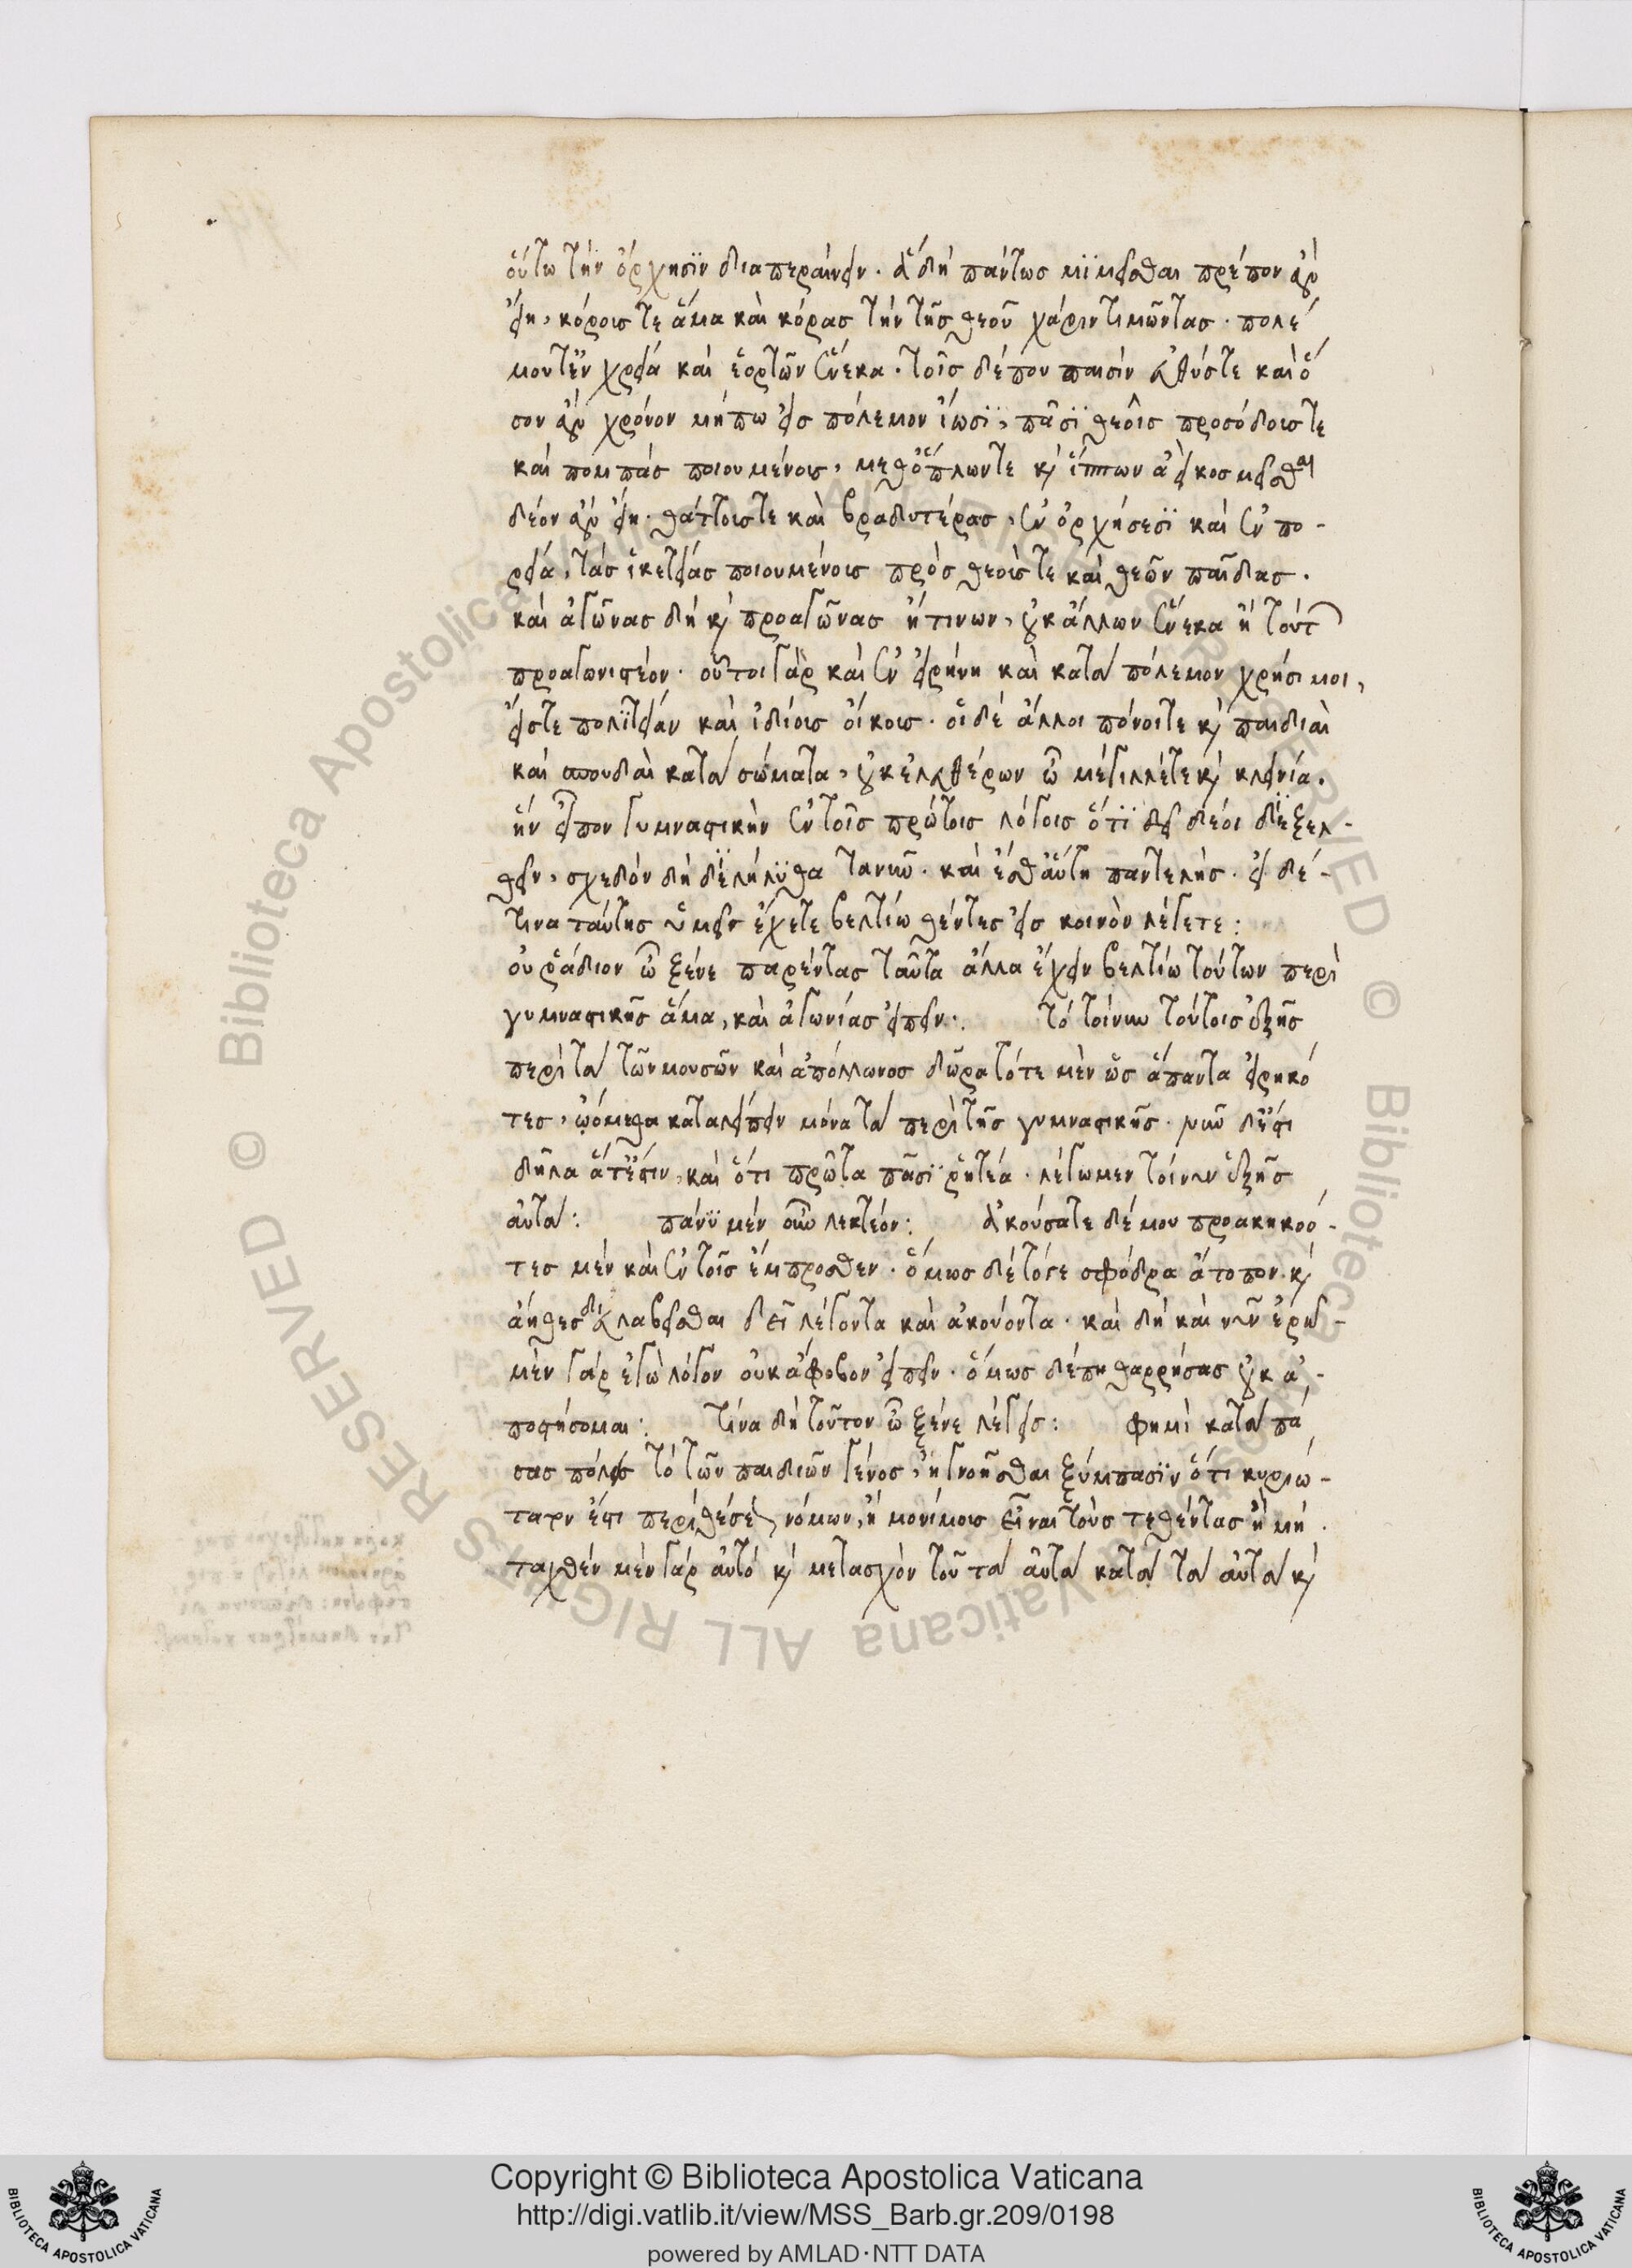 οὕτω τὴν ὄρχησϊν διαπεραίνειν. ἃ δὴ πάντως μϊμεῖσθαι πρέπον ἂν
εἴη, κόροις τε ἅμα καὶ κόρας τὴν τῆς θεοῦ χάριν τιμῶντας. πολέ
μου τ' ἐν χρεία καὶ ἑορτῶν ἕνεκα. τοῖς δέ που παισὶν εὐθύς τε καὶ ὅ
σον ἂν χρόνον μήπω εἰς πόλεμον ἴωσϊ, πᾶσϊ θεοῖς προσόδοις τε
καὶ πομπὰς ποιουμένοις, μεθ' ὅπλων τε κ̀ ἵππων ἀεὶ κοσμεῖσθαι
δέον ἂν εἴη. θάττοις τε καὶ βραδυτέρας, ἐν ὀρχήσεσϊ καὶ ἐν πο-
ρεία, τὰς ἱκετείας ποιουμένοις πρὸς θεοὺς τε καὶ θεῶν παῖδας.
καὶ ἀγῶνας δὴ κ̀ προαγῶνας ἤ τινων, οὐκ ἄλλων ἕνεκα ἢ τούτ
προαγωνιστέον. οὗτοι γὰρ καὶ ἐν εἰρήνη καὶ κατὰ πόλεμον χρήσιμοι,
εἴς τε πολϊτείαν καὶ ἰδίοις οἴκοις. οἱ δὲ ἄλλοι πόνοι τε κ̀ παιδιαὶ
καὶ σπουδαὶ κατὰ σώματα, οὐκ ἐλευθέρων ὦ μέγιλλέ τε κ̀ κλεινία.
ἣν εἶπον γυμναστικὴν ἐν τοῖς πρώτοις λόγοις ὅτϊ δεῖ δέοι δϊεξελ-
θεῖν, σχεδὸν δὴ δϊελήλϋθα τανῦν. καὶ ἔσθ' αὕτη παντελής. εἰ δέ-
τινα ταύτης ὑμεῖς ἔχετε βελτίω θέντες εἰς κοινὸν λέγετε:
οὐ ῥάδιον ὦ ξένε παρέντας ταῦτα ἄλλα ἔχειν βελτίω τούτων περὶ
γυμναστικῆς ἅμα, καὶ ἀγωνίας εἰπεῖν:. τὸ τοίνυν τούτοις ἑξῆς
περὶ τὰ τῶν μουσῶν καὶ ἀπόλλωνος δῶρα τότε μὲν ὡς ἅπαντα εἰρηκό
τες, ᾠόμεθα καταλείπειν μόνα τὰ περὶ τῆς γυμναστικῆς. νῦν δ' ἔστι
δῆλα ἅ τ' ἔστιν, καὶ ὅτι πρῶτα πᾶσϊ ῥητέα. λέγωμεν τοίνυν ἑξῆς
αὐτά: πάνϋ μὲν οὖν λεκτέον: ἀκούσατε δέ μου προακηκοό-
τες μὲν καὶ ἐν τοῖς ἔμπροσθεν. ὅμως δὲ τό γε σφόδρα ἄτοπον κ̀
ἄηθες διευλαβεῖσθαι δεῖ λέγοντα καὶ ἀκούοντα. καὶ δὴ καὶ νῦν ἐρῶ-
μὲν γὰρ ἐγὼ λόγον οὐκ ἄφοβον εἰπεῖν. ὅμως δέ πη θαρρήσας οὐκ ἀ-
ποστήσομαι: τίνα δὴ τοῦτον ὦ ξένε λέγεις: φημὶ κατὰ πά
σας πόλεις τὸ τῶν παιδιῶν γένος, ἠγνοῆσθαι ξύμπασϊν ὅτι κυριώ-
τατον ἔστι περὶ θέσεως νόμων, ἢ μονίμοις εἶναι τοὺς τεθέντας ἢ μή.
ταχθὲν μὲν γὰρ αὐτὸ κ̀ μετασχὸν τοῦ τὰ αὐτὰ κατὰ τὰ αὐτὰ κ̀
Copyright © Biblioteca Apostolica Vaticana
http://digi.vatlib.it/view/MSS_Barb.gr.209/0198
powered by AMLAD·NTT DATA